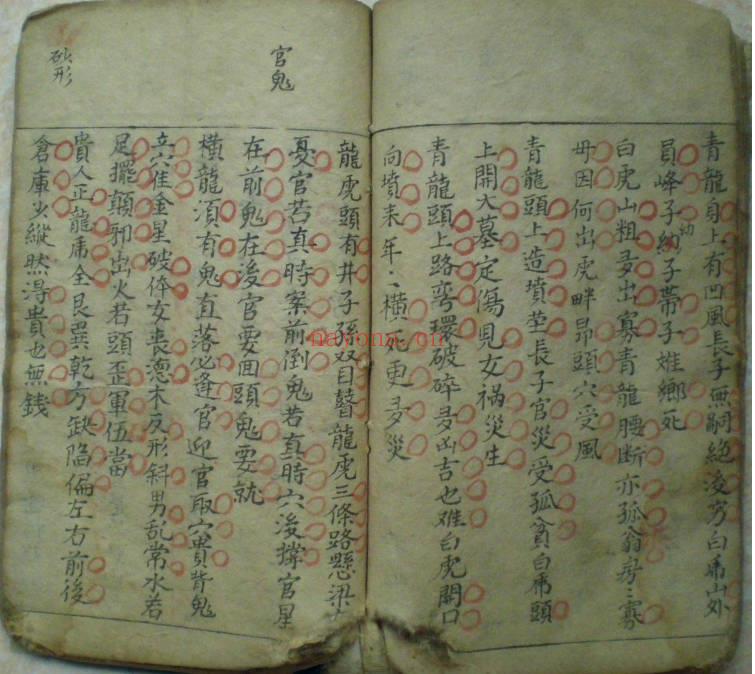 青龍身上有凹風長子無嗣絕後房白席山外
員峰子幼子帶子姓鄉死
幼
白虎山粗多出寡青龍腰断亦孤翁房〻寡
毋因何出虎畔昂頭穴受風
青龍頭上造墳茔長子官災受孤貧白席頭
上開大墓定傷児女祸災生
青龍頭上路弯環破碎多凶吉也难白虎開口
向墳来年〻橫死更多災
官鬼
龍虎頭有井子孫双目瞽龍虎三條路懸梁
憂官若真時案前倒鬼若真時穴後撐官星
在前鬼在後官要回頭鬼要就
橫龍湏有鬼直落必逢官迎官取寔背鬼
立穴佳金星破碎女丧德木反形斜男乱常水若
足擺顛邪出火若頭歪軍伍當
砂形
貴人正龍席全艮巽乾方缺陷偏左右前後
倉庫少縱然淂貴也無銭
nayona.cn